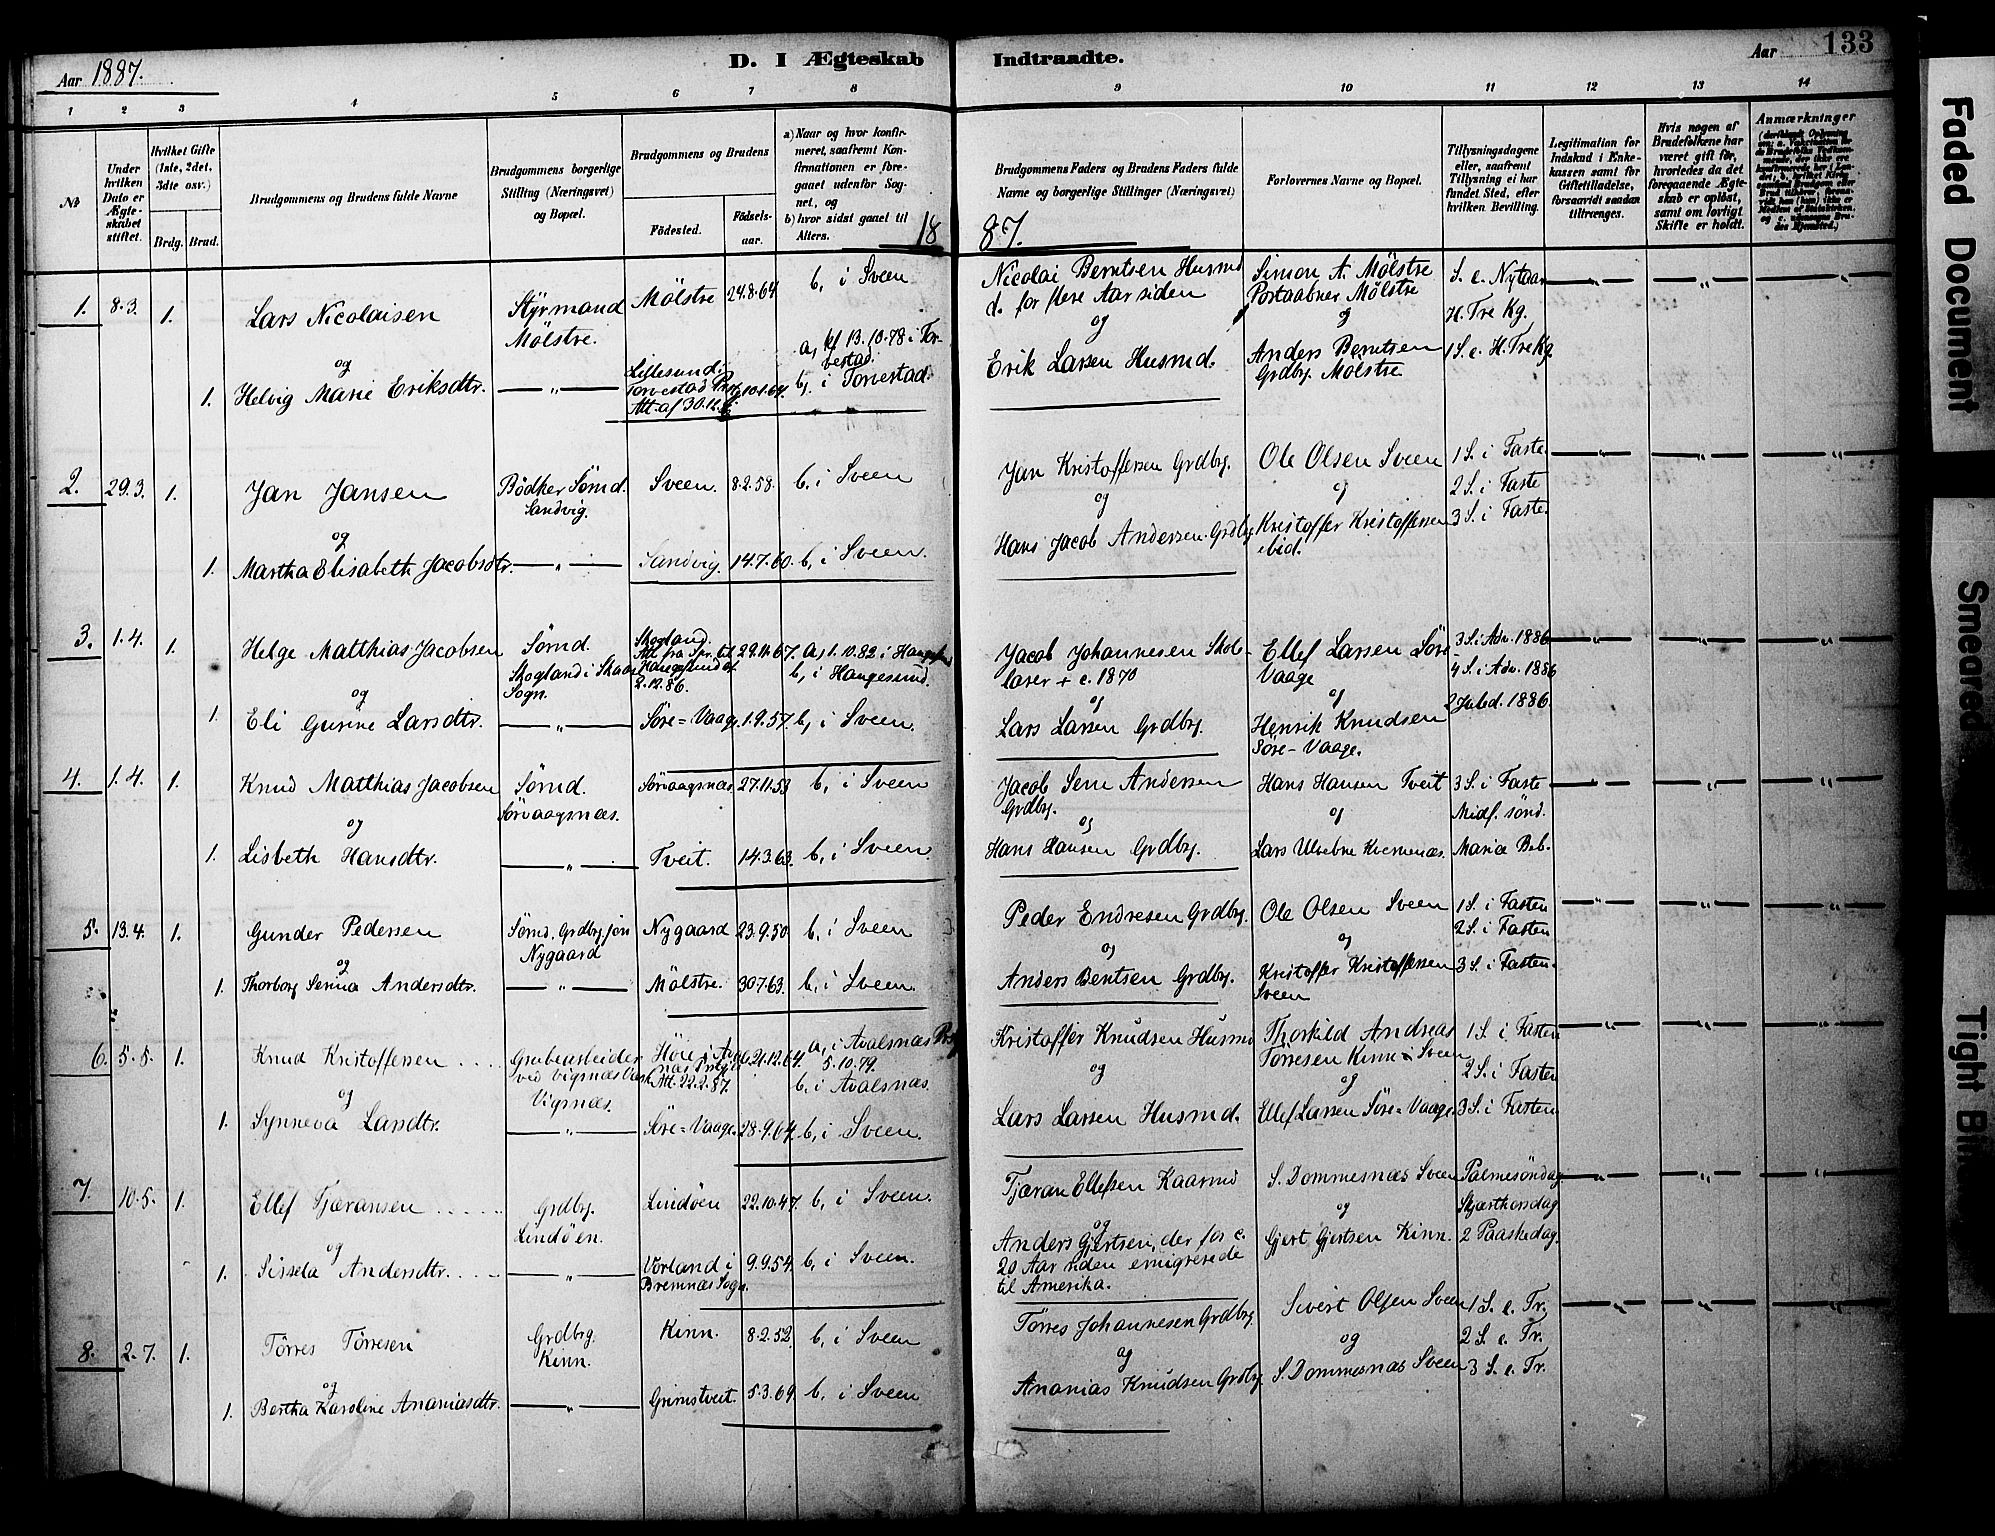 Aar 1887. D. I Ægteskab Indtraadte. Aar 133
1 2 3 4 5 6 7 8 9 10 11 12 13 14
No
Under hvilken Dato er Ægteskabet stiftet.
Hvilket Gifte (1ste, 2det, 3dte osv.)
Brdg. Brud.
Brudgommens og Brudens fulde Navne
Brudgommens borgerlige Stilling (Næringsvei) og Bopæl.
Brudgommens og Brudens
Fødested. Fødselsaar.
a) Naar og hvor konfirmeret, saafremt Konfirmationen er foregaaet udenfor Sognet, og
b) hvor sidst gaaet til Alters.
Brudgommens Faders og Brudens Faders fulde Navne og borgerlige Stillinger (Næringsvei)
Forlovernes Navne og Bopæl.
Tillysningsdagene eller, saafremt Tillysning ei har fundet Sted, efter hvilken Bevilling.
Legitimation for Indskud i Enkekassen samt for Giftetilladelse, forsaavidt saadan tiltrænges.
Hvis nogen af Brudefolkene har været gift før, hvorledes da det foregaaende Ægteskab er opløst, samt om lovligt Skifte er holdt.
Anmærkninger
1887.
1. 8.3. 1. Lars Nicolaisen Styrmand Mölstre. Mölstre 24.8.64 b, i Sveen
Nicolai Berntsen Husmd d. for flere Aar siden
Simon A. Mölstre Postaabner Mölstre
S. e. Nytaar
H. Tre Kg.
og
1. Helvig Marie Eriksdtr. —„— Lillesund. Torvestad Prgj. Att. af 30.12. 10.1.64. a, kf 13.10.78 i Torvestad. b, i Torvestad.
Erik Larsen Husmd.
Anders Berntsen Grdbr. Mölstre
1 S. e. H. Tre Kg.
2. 29.3. 1. Jan Jansen Bödker Sömd. Sandvig. Sveen. 8.2.58. b, i Sveen
Jan Kristoffersen Grdbrg.
Ole Olsen Sveen
1 S. i Faste
2 S. i Faste
3 S. i Faste.
og
1. Martha Elisabeth Jacobsdtr. —„— Sandvig. 14.7.60. b, i Sveen.
Hans Jacob Andersen Grdbrg
Kristoffer Kristoffersen ibid.
3. 1.4. 1. Helge Matthias Jacobsen Sömd. Skogland i Skaare Sogn. Skogland. Att. fra Spr. til Haugesund af 2.12.86. 29.11.67. a, 1.10.82 i Haugesund b, i Haugesund.
Jacob Johannesen Skolelærer + c. 1870
Ellef Larsen Söre Vaage
3 S. i Adv. 1886
4 S. i Adv. 1886
2 Juled. 1886.
og
1. Eli Gurine Larsdtr. —„— Söre=Vaage. 1.9.57 b, i Sveen.
Lars Larsen Grdbrg.
Henrik Knudsen Söre-Vaage.
4. 1.4. 1. Knud Matthias Jacobsen Sömd. Sörvaagsnæs. Sörvaagsnæs 27.11.53 b, i Sveen
Jacob Sem Andersen Grdbrg.
Hans Hansen Tveit
3 S. i Faste
Midf. sönd.
og
1. Lisbeth Hansdtr. —„— Tveit. 14.3.63. b, i Sveen.
Hans Hansen Grdbrg.
Maria Beb.
5. 13.4. 1. Gunder Pedersen Sömd. Nygaard Nygaard 23.9.50 b, i Sveen
Peder Endresen Grdbrg.
Ole Olsen Sveen
1 S. i Fasten
2 S. i Fasten
3 S. i Fasten.
og
1. Thorborg Serina Andersdtr. —„— Mölstre. 30.7.63. b, i Sveen.
Anders Bentsen Grdbrg.
Kristoffer Kristoffersen Sveen
6. 5.5. 1. Knud Kristoffersen Grubearbeider ved Vigsnæs Værk Vigsnæs. Att. 22.2.87. 21.12.64 a, i Avalsnæs Prgj 5.10.79. b, i Avalsnæs.
Kristoffer Knudsen Husmd
Thorkild Andreas Törresen Kinn Sveen
1 S. i Fasten
2 S. i Fasten
3 S. i Fasten
og
1. Synneva Larsdtr. —„— Söre=Vaage. 28.9.64. b, i Sveen.
Lars Larsen Husmd.
Ellef Larsen Söre=Vaage
7. 10.5. 1. Ellef Tjæransen Grdbrg. Lindöen. Lindöen 22.10.47. b, i Sveen.
Tjæran Ellefsen Kaarmd
S. Dommesnæs Sveen
Palmesöndag
Skjærthorsdag
2 Paaskedag.
og
1. Sissela Andersdtr. —„— Vorland i Bremnæs Sogn. 9.9.54. b, i Sveen.
Anders Gjertsen, der for c. 20 Aar siden emigrerede til Amerika.
Gjert Gjertsen Kinn.
8. 2.7. 1. Törres Törresen Grdbrg. Kinn. Kinn. 8.2.52. b, i Sveen
Törres Johannesen Grdbrg.
Sivert Olsen Sveen
1 S. e. Tr.
2 S. e. Tr.
3 S. e. Tr.
og
1. Bertha Karoline Ananiasdtr. —„— Grimstveit. 5.3.69. b, i Sveen
Ananias Knudsen Grdbrg.
S. Dommesnæs Sveen
Faded Document
Smeared
Tight Bin